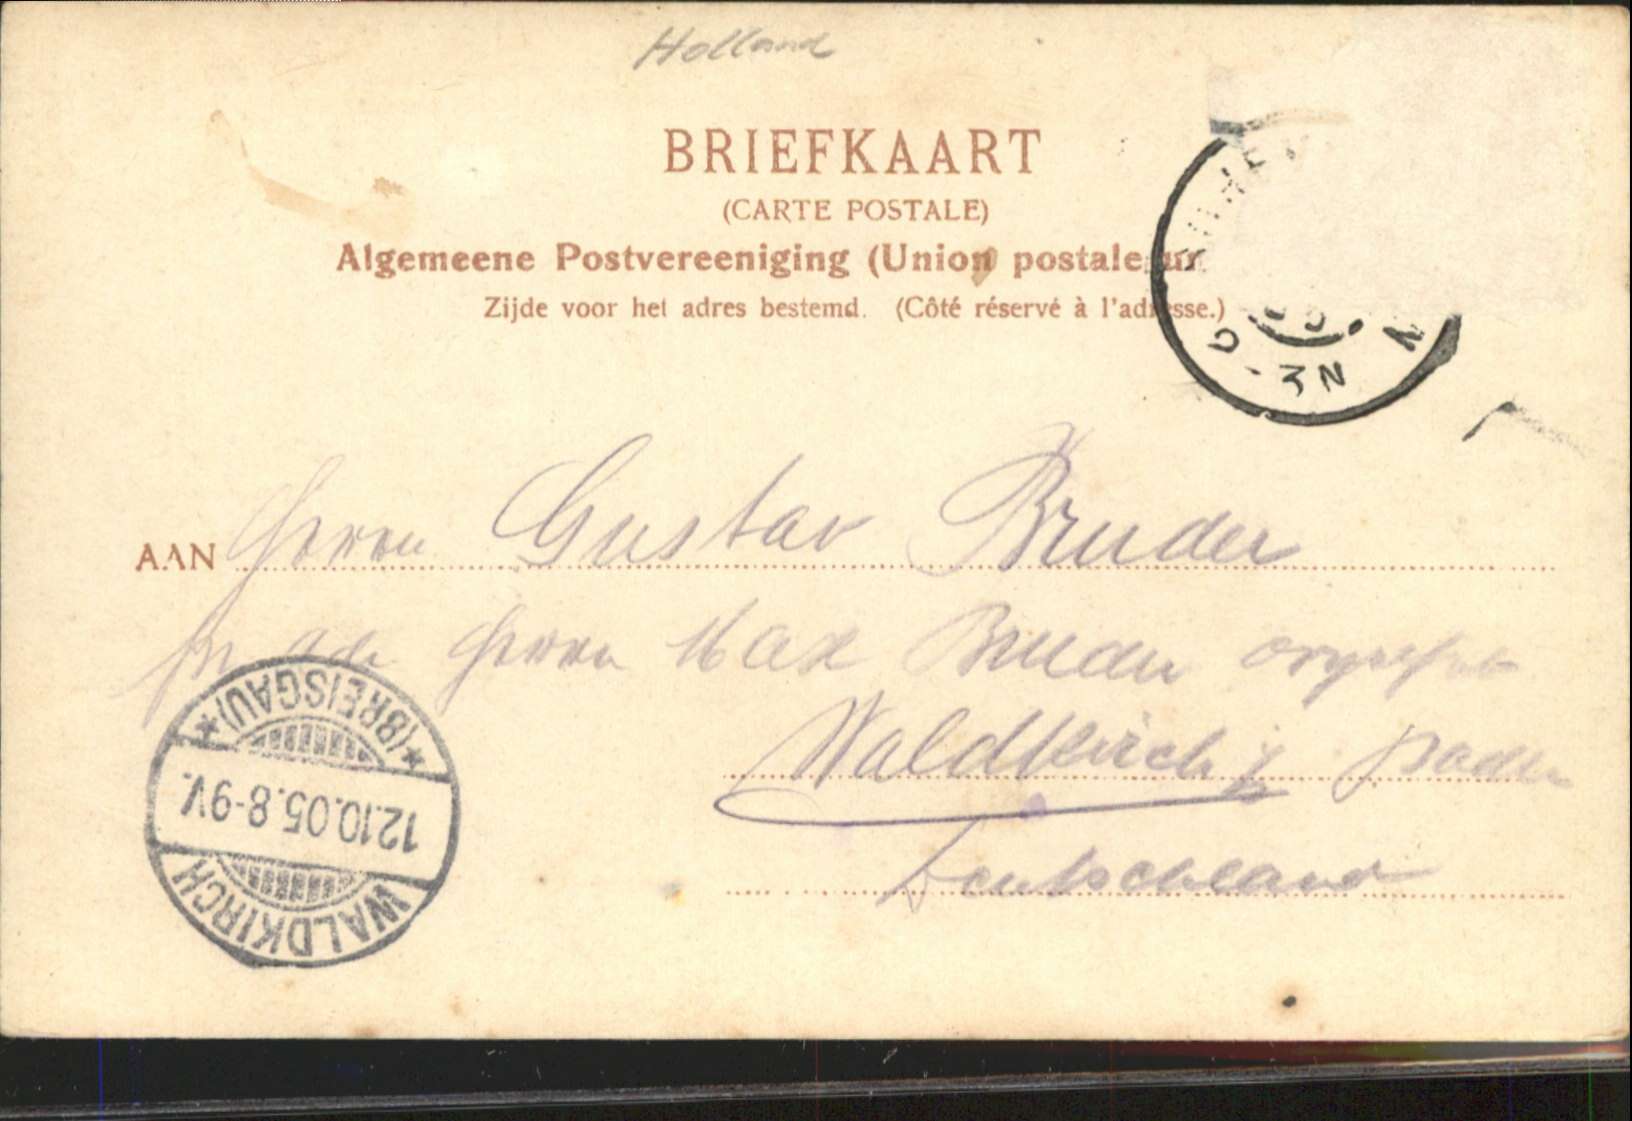 Holland
BRIEFKAART
(CARTE POSTALE)
Algemeene Postvereeniging (Union postale un
Zijde voor het adres bestemd. (Côté réservé à l'adresse.)
3 N
AAN Herrn Gustav Bruder
Herrn Max Bruder
Waldkirch i/ Baden
Deutschland
WALDKIRCH
12.10.05.8-9V.
*(BREISGAU)*